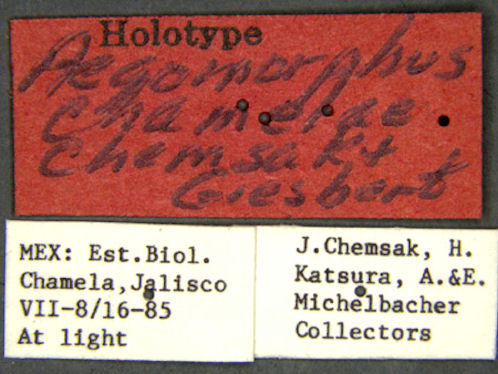 Holotype
Aegomorphus
chamelae
Chemsak &
Giesbert
MEX: Est.Biol.
Chamela,Jalisco
VII-8/16-85
At light
J.Chemsak, H.
Katsura, A.&E.
Michelbacher
Collectors